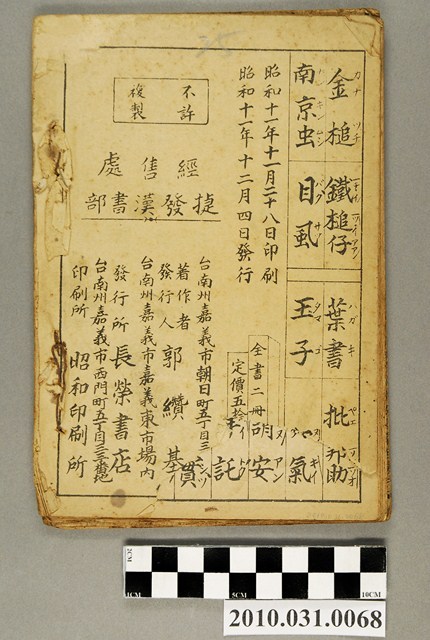 金槌 鐵槌仔 葉書 批
カナ ツチ ハガキ ペエ
南京虫 目虱 玉子
ナンキンムシ バクサ タマゴ
昭和十一年十一月二十八日印刷
昭和十一年十二月四日發行
全書二冊
定價五拾
不許
複製
經售處
捷發漢書部
台南州嘉義市朝日町五丁目三
著作者
發行人 郭纘基
台南州嘉義市嘉義東市場內
發行所 長榮書店
台南州嘉義市西門町五丁目三三番地
印刷所 昭和印刷所
2CM
1CM
5CM
10CM
2010.031.0068